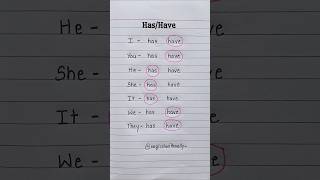 Has/Have
I - has have
You - has have
He - has have
She - has have
It - has have
We - has have
They - has have
He -
She -
It -
We -